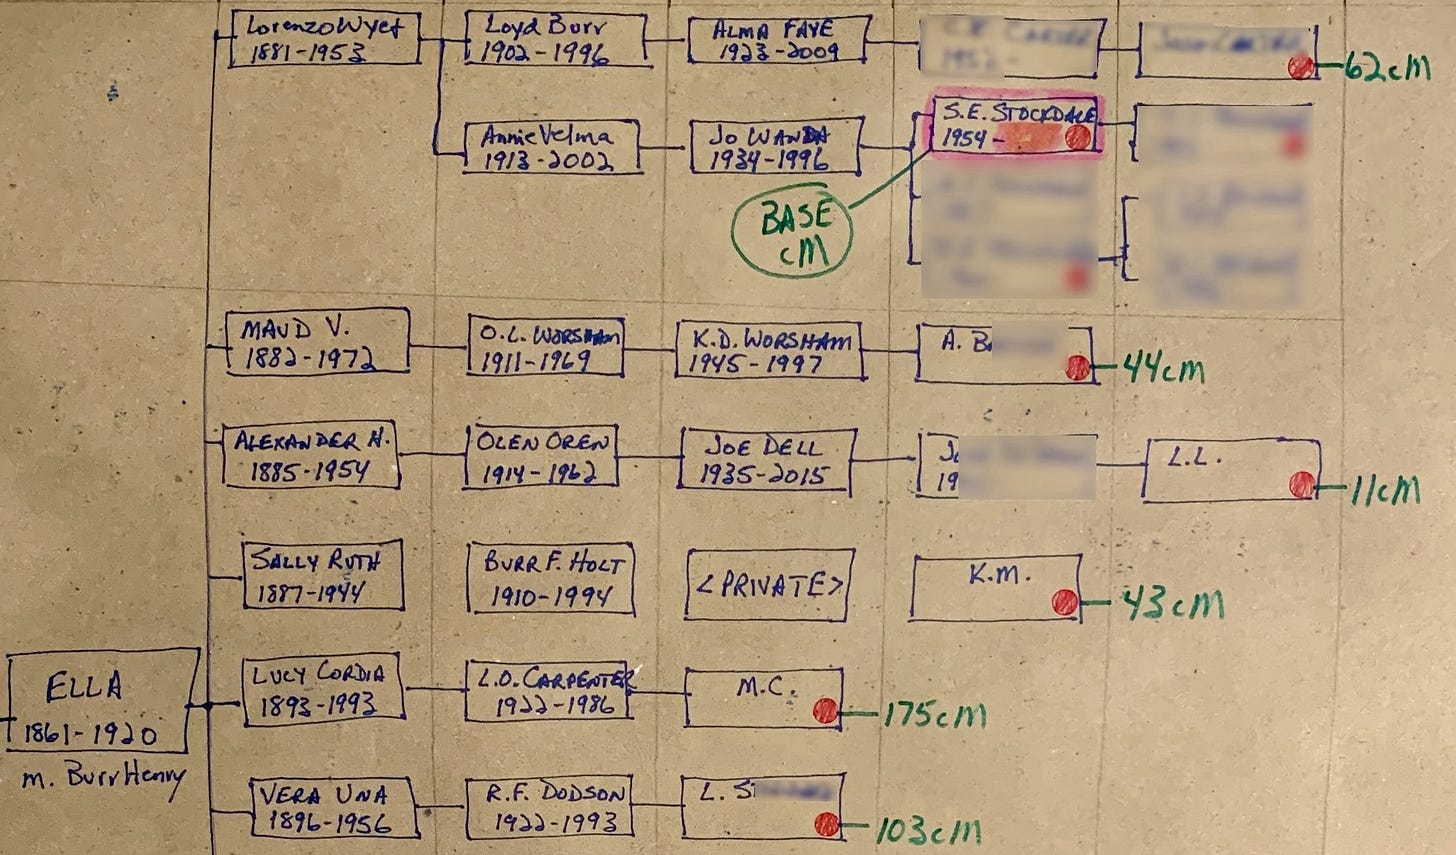 Lorenzo Wyet
1881-1953
Loyd Burr
1902-1996
ALMA FAYE
1923-2009
62cM
Annie Velma
1913-2002
JO WANDA
1934-1996
S.E. STOCKDALE
1954-
BASE
cM
MAUD V.
1882-1972
O.L. WORSHAM
1911-1969
K.D. WORSHAM
1945-1997
A. B
44cM
ALEXANDER H.
1885-1954
OLEN OREN
1914-1962
JOE DELL
1935-2015
J
19
L.L.
11cM
SALLY RUTH
1887-1944
BURR F. HOLT
1910-1994
<PRIVATE>
K.M.
43cM
ELLA
1861-1920
m. Burr Henry
LUCY CORDIA
1893-1993
L.O. CARPENTER
1922-1986
M.C.
175cM
VERA UNA
1896-1956
R.F. DODSON
1922-1993
L. S
103cM